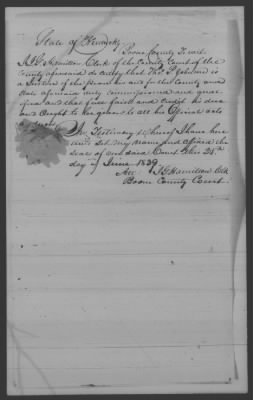 State of Kentucky
Boone County To wit
I J G Hamilton Clerk of the County Court of the
County aforesaid do certify that Thos
is a Justice of the peace in and for the County and
State aforesaid duly commissioned and qual
ified and that full faith and credit is due
and ought to be given to all his Official acts
as such
In Testimony Whereof I have here
unto Set my name and affixed the
seal of our said Court this
day of June 1839
Att. J G Hamilton Clk
Boone County Court